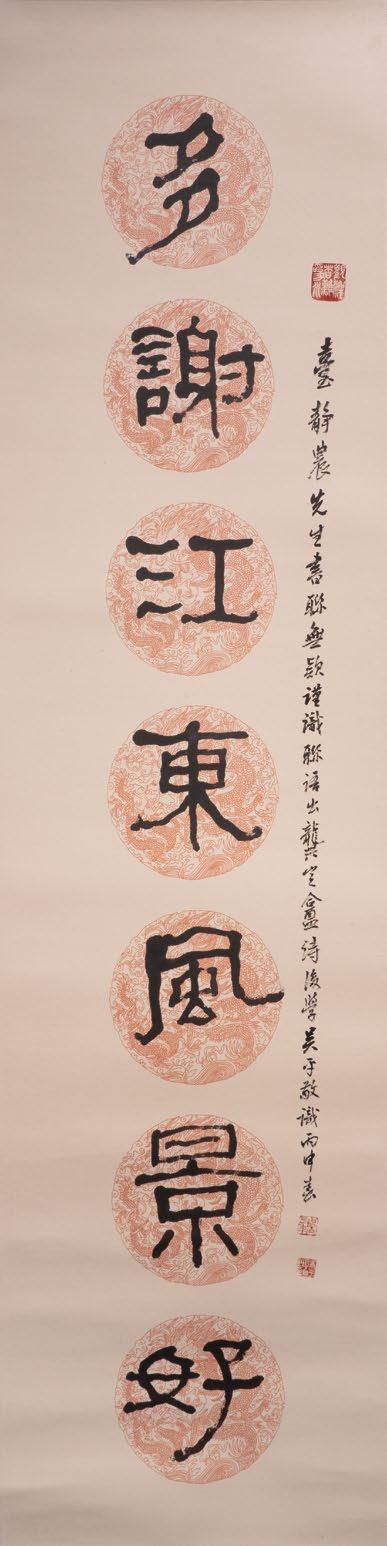 多謝江東風景好
臺靜農先生書聯無款謹識聯語出龔定盦詩後學吴平敬識丙申春